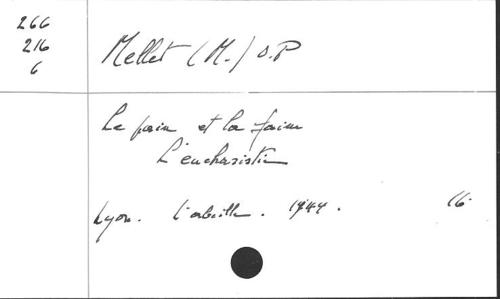 266
216
6
Mellet (M.) O.P
Le pain et la faim
L'eucharistie
Lyon. L'abeille. 1944. 16.